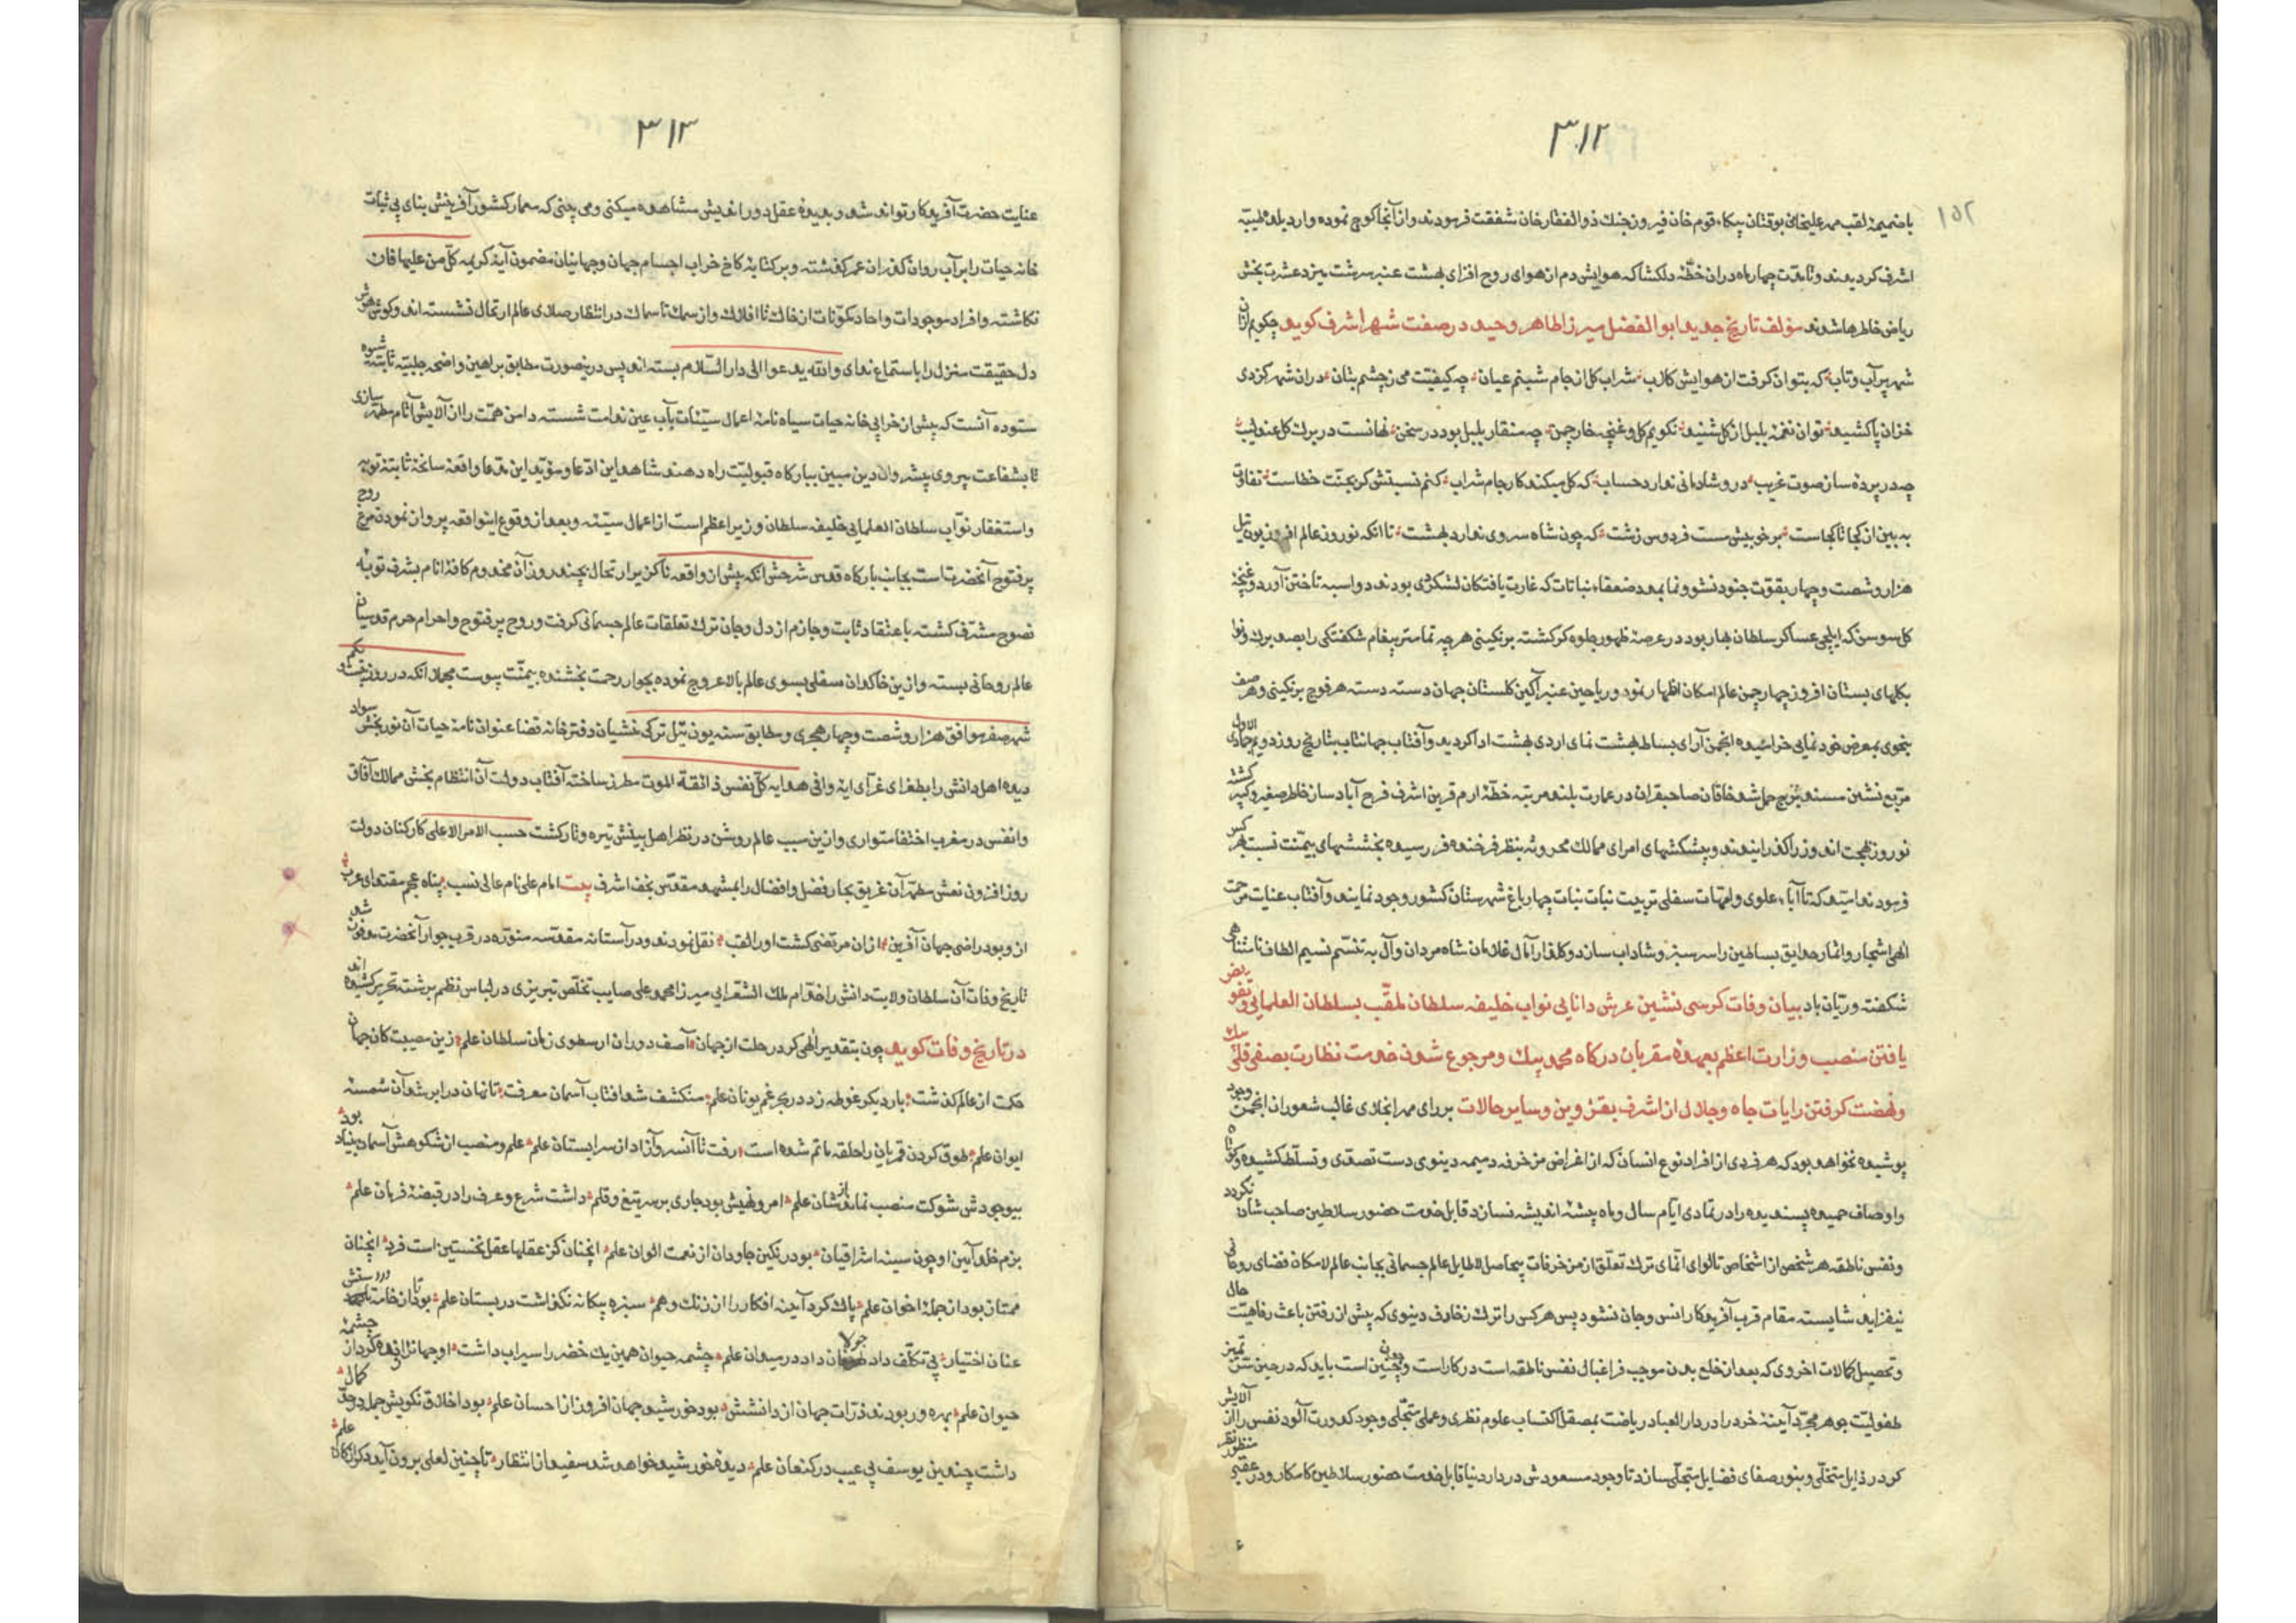 ٣١٢
١٥٢
با ضمیمهٔ لقب محمد علیخانی بوقتان بیکاء قوم خان فیروز جنك ذو الفقار خان شفقت فرمودند و از آنجا کوچ نموده وارد بلدهٔ طیبه
اشرف کردیدند و تا مدت چهار ماه در ان خطّهٔ دلکشا که هوایش دم از هوای روح افزای بهشت عنبر سرشت میزد عشرت بخش
ریاض خاطرها شدند مؤلف تاریخ جدید ابو الفضل میرزا طاهر وحید در صفت شهر اشرف کوید چکویم از ان
شهر پر آب و تاب که بتوان کرفت از هوایش کلاب شراب کل از جام شبنم عیان چه کیفیت می ز چشم بتان در ان شهر کز دی
خزان پا کشید توان نغمهٔ بلبل از کل شنید نکویم کل و غنچه خار چمن چه منقار بلبل بود در سخن نهانست در برك کل عندلیب
چو در پردهٔ ساز صوت غریب در و شادمانی ندارد حساب که کل میکند کار جام شراب کنم نسبتش کر بجنّت خطاست تفاوت
به بین از کجا تا کجاست بر خوبیش مست فردوس زشت که چون شاه سروی ندارد بهشت تا انکه نوروز عالم افروز یونت ئیل
هزار و شصت و چهار بقوّت جنود نشو و نما بمدد ضعفاء نباتات که غارت یافتکان لشکر دی بودند دو اسبه تاختن آورد و غنچهٔ
کل سوسن که ایلچی عساکر سلطان بهار بود در عرصهٔ ظهور جلوه کر کشته برنکینی هر چه تمامتر پیغام شکفتکی را بصد برك و نوا
بکلهای بستان افروز چهار چمن عالم امکان اظهار نمود و ریاحین عنبر آکین کلستان جهان دسته دسته هر فوج برنکینی و هر صف
بنحوی بمعرض خود نمایی خرامیده انجمن آرای بساط بهشت نمای اردی بهشت ادا کردید و آفتاب جهانتاب بتاریخ روز دویم جمادی الاول
مربّع نشین مسند برج حمل شد خاقان صاحبقران در عمارت بلند مرتبه خطّهٔ ارم قرین اشرف فرح آباد ساز خاطر صغیر و کبیر کشته
نوروز بهجت اندوز را کذرانیدند و پیشکشهای امرای ممالك محروسه بنظر فرخنده فر رسیده بخششهای بیمنّت نسبت بهر کس
فرمودند امید که تا آباء علوی و امّهات سفلی تربیت نبات نبات چهار باغ شهرستان کشور وجود نمایند و آفتاب عنایت مرحمت
الهی اشجار و اثمار حدایق بساطین را سرسبز و شاداب سازد و کلذار آمال غلامان شاه مردان و آل به تنسّم نسیم الطاف نامتناهی
شکفته و ریّان باد بیان وفات کرسی نشین عرش دانایی نواب خلیفه سلطان ملقّب بسلطان العلمایی و تفویض
یافتن منصب وزارت اعظم بعهدهٔ مقربان درکاه محمد بیك و مرجوع شدن خدمت نظارت بصفی قلی بیك
و نهضت کرفتن رایات جاه و جلال از اشرف بقزوین و سایر حالات بر رای مهر انجلای غالب شعوران انجمن وجود
پوشیده نخواهد بود که هر فردی از افراد نوع انسان که از اغراض مزخرفهٔ دمیمه دینوی دست تصدّی و تسلّط کشیده و کوتاه
و اوصاف حمیده پسندیده را در تمادی ایّام سال و ماه پیشهٔ اندیشه نسازد قابل خدمت حضور سلاطین صاحب شان نکردد
و نفس ناطقه هر شخص از اشخاص تا لوای انّمای ترك تعلّق از مزخرفات بیحاصل لاطایل عالم جسمانی بجانب عالم لامکان فضای روحانی
نیفزاید شایسته مقام قرب آفریدکار انس و جان نشود پس هر کس را ترك زخارف دینوی که پیش از رفتن باعث رفاهیّت حال
و تحصیل کمالات اخروی که بعد از خلع بدن موجب فراغبالی نفس ناطقه است در کار است و چنین است باید که در حین سنّ تمیز
طفولیّت جوهر مجرّد آینهٔ خرد را در دار العباد ریاضت بمصقل اکتساب علوم نظری و عملی متجلّی وجود کدورت آلود نفس را از آلایش
کرد رذایل متخلّی و بنور صفای فضایل متجلّی سازد تا وجود مسعودش در دار دنیا قابل خدمت حضور سلاطین کامکار و در عقبی منظور نظر
٣١٣
عنایت حضرت آفریدکار تواند شد و بدیدهٔ عقل دور اندیش مشاهده میکنی و می بینی که معمار کشور آفرینش بنای بی ثبات
خانه حیات را بر آب روان کذران عمر کذشته و بر کتابهٔ کاخ خراب اجسام جهان و جهانیان مضمون آیهٔ کریمه کلّ من علیها فان
نکاشته و افراد موجودات و احاد مکوّنات از خاك تا افلاك و از سمك تا سماك در انتظار صلای عالم ارتحال نشسته اند و کوش هوش
دل حقیقت منزل را باستماع ندای و اللّه یدعوا الی دار السّلام بسته اند پس درینصورت مطابق براهین واضحه جلیّه ثابته شیوه
ستوده آنست که پیش از خرابی خانه حیات سیاه نامهٔ اعمال سیّئات بآب عین ندامت شسته دامن همّت را از آلایش آثام مطهّر سازی
تا بشفاعت پیروی پیشروان دین مبین ببارکاه قبولیّت راه دهند شاهد این ادّعا و مؤیّد این مدّعا واقعهٔ سانحهٔ ثابتهٔ توبه
و استغفار نوّاب سلطان العلمایی خلیفه سلطان وزیر اعظم است از اعمال سیّئه و بعد از وقوع اینواقعه پرواز نمودن مرغ روح
پر فتوح آنحضرت است بجانب بارکاه قدس شرحش انکه پیش از واقعه ناکزیر ارتحال بچند روز آن مخدوم کافهٔ انام بشرف توبه
نصوح مشرّف کشته باعتقاد ثابت و جازم از دل و جان ترك تعلقات عالم جسمانی کرفت و روح پر فتوح و احرام حرم قدوسیان
عالم روحانی بسته و ازین خاکدان سفلی بسوی عالم بالا عروج نموده بجوار رحمت بخشنده بیمنّت پیوست مجملا انکه در روز
شهر صفر موافق هزار و شصت و چهار هجری و مطابق سنه یونت ئیل ترکی منشیان دفتر خانه قضا عنوان نامهٔ حیات آن نور بخش سواد
دیده اهل دانش را بطغرای غرّای ایهٔ وافی هدایه کلّ نفس ذائقة الموت مطرز ساخته آفتاب دولت آن انتظام بخش ممالك آفاق
و انفس در مغرب اختفا متواری و ازین سبب عالم روشن در نظر اهل بینش تیره و تار کشت حسب الامر الاعلی کارکنان دولت
روز افزون نعش مطهّر آن غریق بحار فضل و افضال را بمشهد مقدّس نجف اشرف بیت امام علی نام عالی نسب پناه عجم مقتدای عرب
از و بود راضی جهان آفرین از ان مرتضی کشت او را لقب نقل نمودند و در آستانه مقدّسه منوّره در قرب جوار آنحضرت مدفون شد
تاریخ وفات آن سلطان ولایت دانش را خدّام ملك الشعرایی میرزا محمد علی صایب تخلّص تبریزی در لباس نظم برشته تحریر کشیده اند
در تاریخ وفات کوید چون بتقدیر الهی کرد رحلت از جهان آصف دوران ارسطوی زمان سلطان علم زین مصیبت کان جهان
حکمت از عالم کذشت بار دیکر غوطه زد در بحر غم یونان علم منکشف شد آفتاب آسمان معرفت تا نهان در ابر شد آن شمسهٔ
ایوان علم طوق کردن قمریان را حلقه ماتم شده است رفت تا آنسرو آزاد از سرابستان علم علم و منصب از شکوهش آسمان بنیاد بود
بیوجودش شوکت منصب نماند و شان علم امر و نهیش بود جاری بر سر تیغ و قلم داشت شرع و عرف را در قبضهٔ فرمان علم
بزم خلد آیین او چون سینه اشراقیان بود رنکین جاودان از نعمت الوان علم انچنان کز عقلها عقل نخستین است فرد انچنان
ممتاز بود از جملهٔ اخوان علم پاك کرد آینه افکار را از زنك وهم سبزه بیکانه نکذاشت در بستان علم بود تا از خامه در دستش
عنان اختیار بی تکلّف داد جولان داد در میدان علم چشمه حیوان همین یك خضر را سیراب داشت او جهانی را چشمهٔ
حیوان علم بهره ور بودند ذرّات جهان از دانشش بود خورشید جهان افروز از احسان علم بود اخلاق نکویش جمله در حدّ کمال
داشت چندین یوسف بی عیب در کنعان علم دیدهٔ خورشید خواهد شد سفید از انتظار تا چنین لعلی برون آید دکر از کان علم